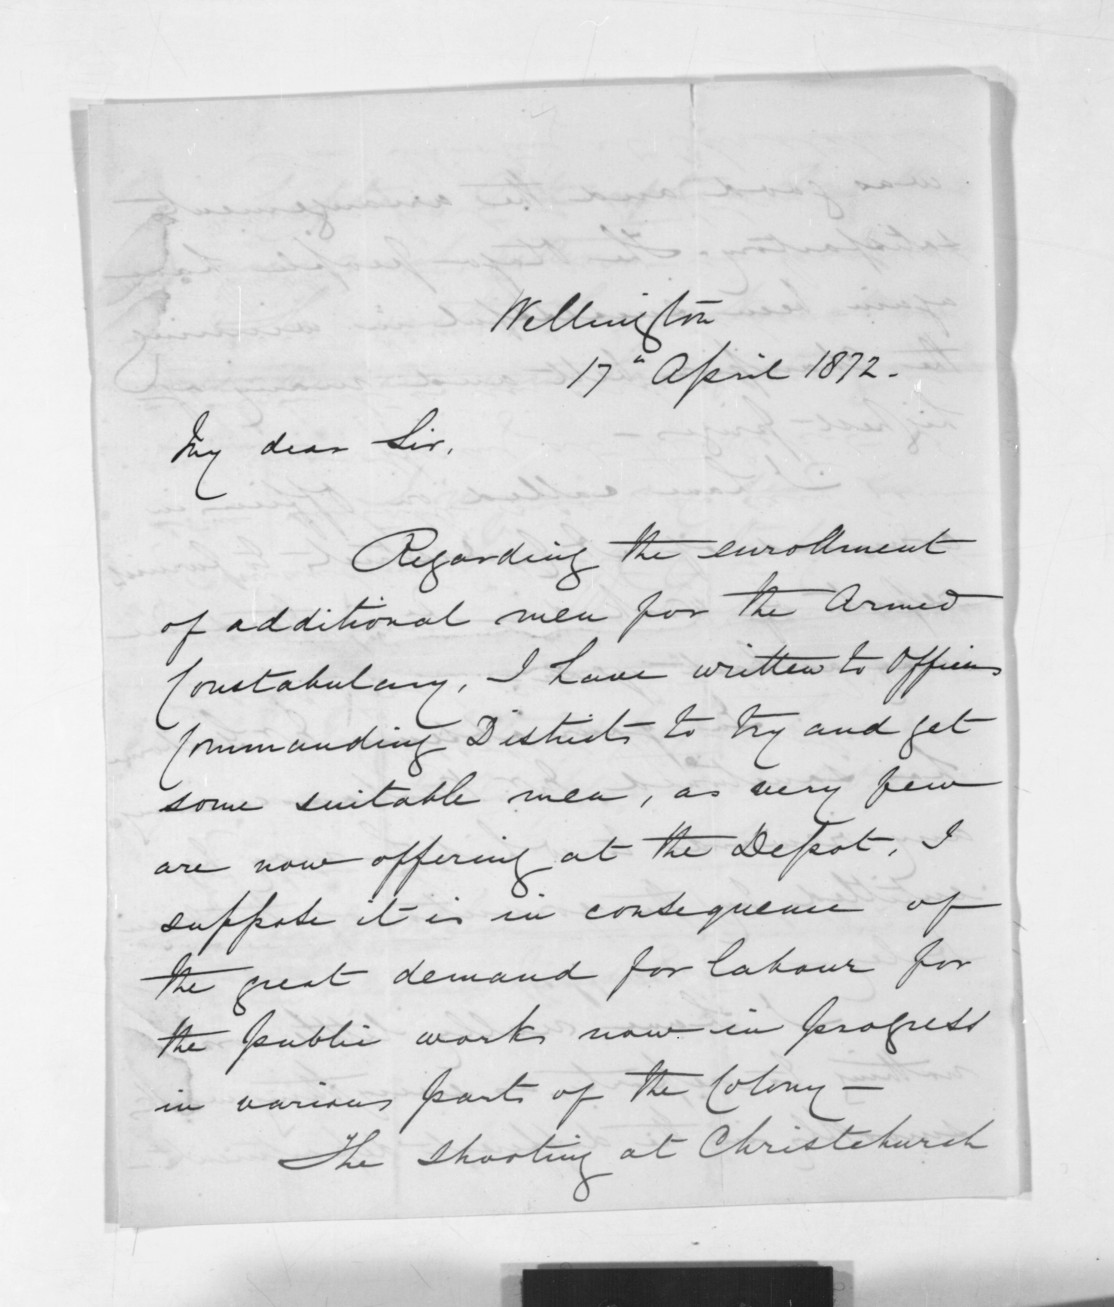 Wellington
17th April 1872.
My dear Sir,
Regarding the enrollment
of additional men for the Armed
Constabulary, I have written to Officers
Commanding Districts to try and get
some suitable men, as very few
are now offering at the Depot, I
suppose it is in consequence of
the great demand for labour for
the public works now in progress
in various parts of the Colony –
The shooting at Christchurch